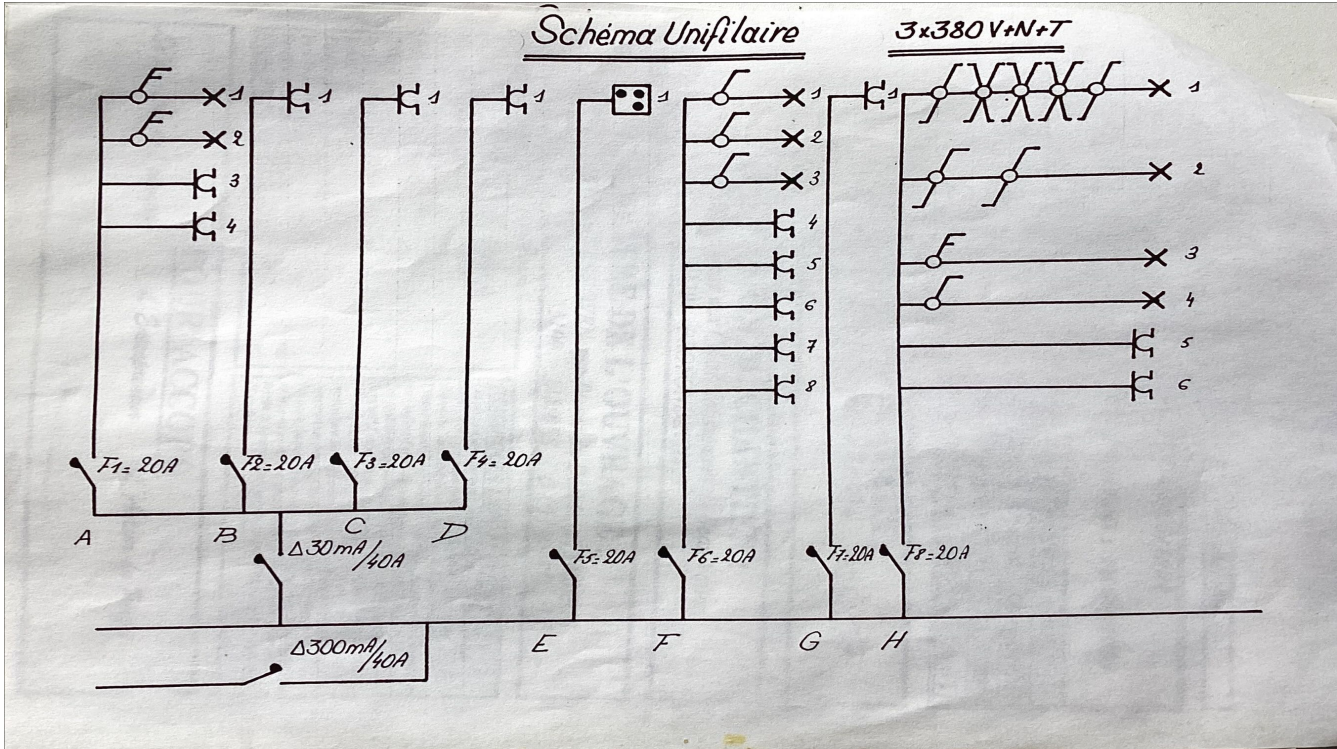 Schéma Unifilaire
3x380V+N+T
1
2
3
4
1
1
1
1
1
2
3
4
5
6
7
8
1
1
2
3
4
5
6
F1=20A
F2=20A
F3=20A
F4=20A
A
B
C
D
Δ30mA/40A
F5=20A
F6=20A
F7=20A
F8=20A
E
F
G
H
Δ300mA/40A